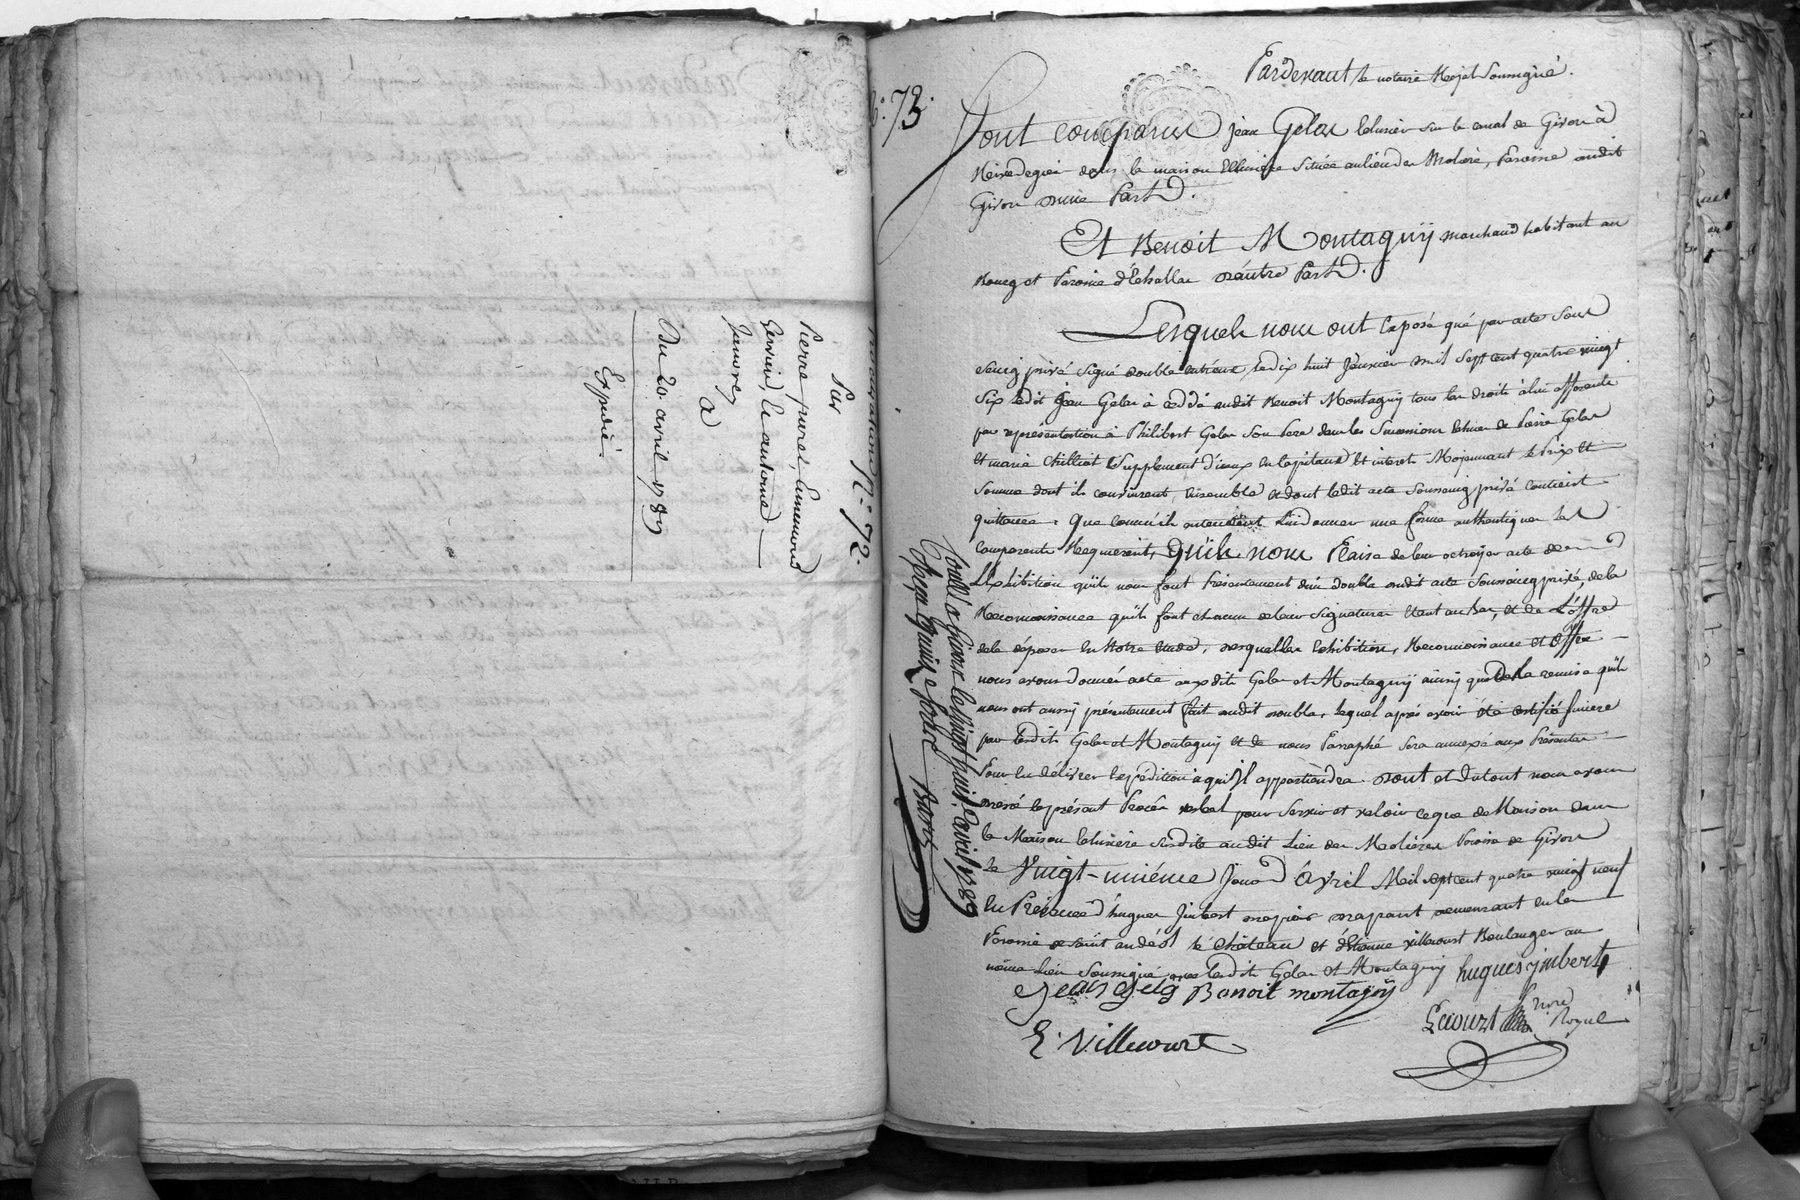 procuration N.° 72.
Sur
Pierre puret, Emmenvoid
Gervaid, laautonne
Janvre
a
Du 20. avril 1789
Expedié.
N.° 73.
Pardevant le notaire Royal Soussigné.
Sont comparus Jean Gelas Eclusier sur le canal de Givors à
Rivedegier dans la maison Eclusiere située au lieu des Molieres, Paroisse dudit
Givors d'une Part.
Et Benoit Montagny marchand habitant au
Bourg et Paroisse d'Echallas d'autre Part.
Lesquels nous ont Exposé que par acte sous
seing privé signé double entr'eux le dix huit Janvier mil sept cent quatre vingt
Six ledit Jean Gelas à cédé audit Benoit Montagny tous les droits à lui afferents
par représentation à Philibert Gelas son Pere dans les Successions de Pierre Gelas
Et marie Chilliat & Supplement d'iceux en Capitaux Et interets Moyennant le Prix Et
Somme dont ils convinrent, ensemble & dont ledit acte sousseing privé contient
quittance. Que comme ils lui donner une forme authentique les
comparants Requierent, qu'ils nous Plaise de leur octroyer acte de
L'Exhibition qu'ils nous font Présentement d'un double dudit acte sousseing privé, de la
Reconnoissance qu'ils font chacun de leur signature étant au Bas, et de L'offre
de le déposer en Notre étude, desquelles Exhibition, Reconnoissance et offre
nous avons donné acte auxdits Gelas et Montagny ainsy que de la remise qu'ils
nous ont aussy présentement fait dudit double, lequel après avoir été certifié sincere
par lesdits Gelas et Montagny et de nous Parraphé sera annexé aux Présentes
Pour en délivrer expédition à qui il appartiendra. dont et du tout nous avons
dressé le présent Procès verbal pour servir et valoir ce que de Raison dans
la Maison Eclusiere susdite audit Lieu des Molieres Paroisse de Givors
le Vingt-uniéme Jour d'Avril Mil sept cent quatre vingt neuf
En Présence d'hugues Jmbert drapier drapant demeurant en la
Paroisse de Saint andéol le Château et d'Etienne Villecourt Boulanger au
même Lieu soussignés avec lesdits Gelas et Montagny hugues jmbert
Jean gelas Benoit montagny
E. Villecourt
Lecourt Nore Royal
Conllé a Givors le vingt huit avril 1789
Reçu quinze sols